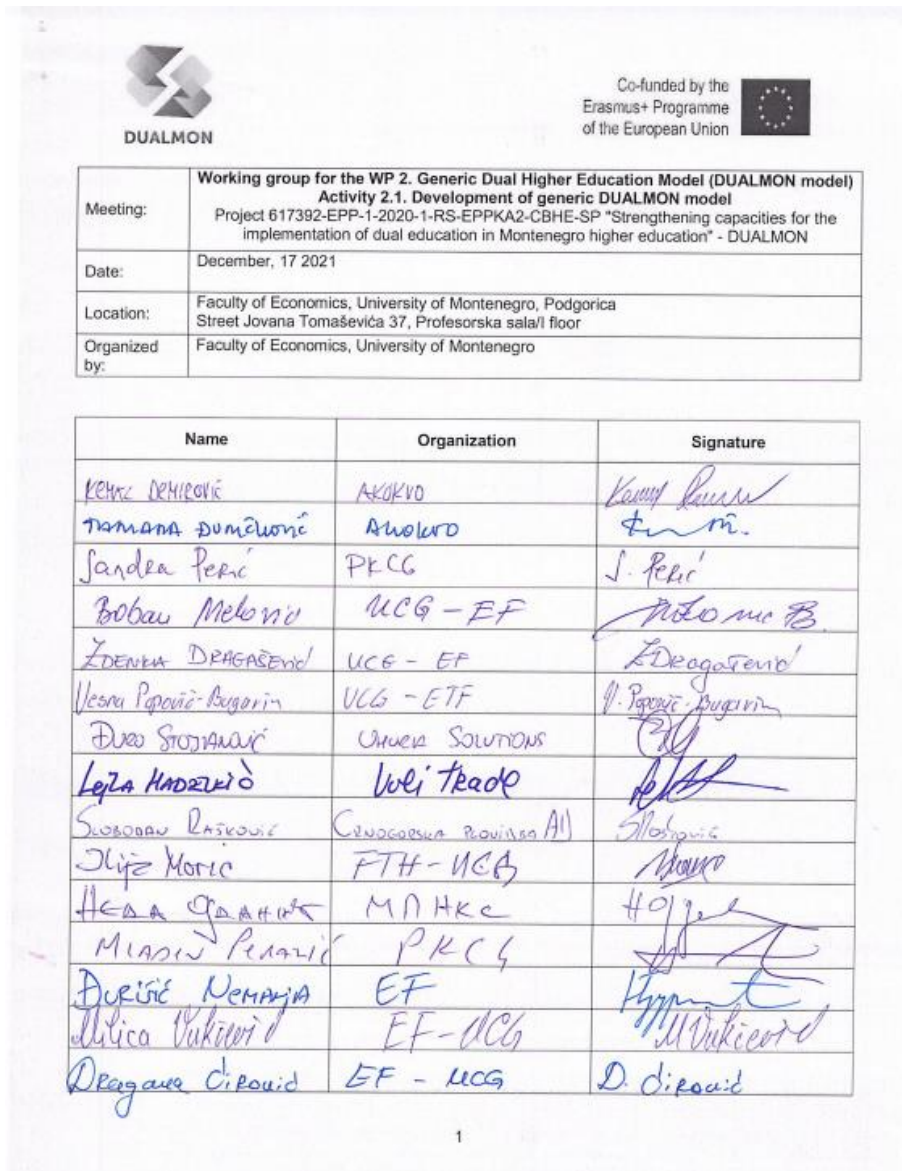 DUALMON
Co-funded by the
Erasmus+ Programme
of the European Union
Meeting:
Working group for the WP 2. Generic Dual Higher Education Model (DUALMON model)
Activity 2.1. Development of generic DUALMON model
Project 617392-EPP-1-2020-1-RS-EPPKA2-CBHE-SP "Strengthening capacities for the
implementation of dual education in Montenegro higher education" - DUALMON
Date: December, 17 2021
Location: Faculty of Economics, University of Montenegro, Podgorica
Street Jovana Tomaševića 37, Profesorska sala/I floor
Organized by: Faculty of Economics, University of Montenegro
Name Organization Signature
KEMAL DEMIROVIĆ AKOKVO
AKOKVO
Sandra Perić PKCG S. Perić
Boban Melović UCG - EF
ZDENKA DRAGAŠEVIĆ UCG - EF ZDragašević
Vesna Popović-Bugarin UCG - ETF V. Popović-Bugarin
ĐURO STOJANOVIĆ SOLUTIONS
Lejla Voli Trade
SLOBODAN RAŠKOVIĆ CRNOGORSKA PLOVIDBA AD
Ilija Morić FTH-UCG
МПНКС
MLADEN PERAZIĆ PKCG
ĐURIŠIĆ NEMANJA EF
Milica Vukčević EF-UCG M Vukčević
Dragana Ćirović EF - UCG D. Ćirović
1